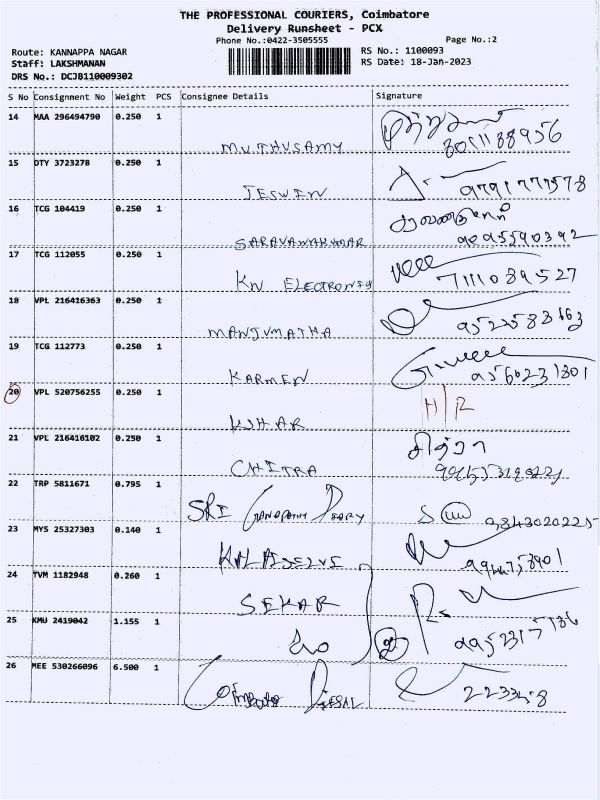 THE PROFESSIONAL COURIERS, Coimbatore
Delivery Runsheet - PCX
Phone No.:0422-3505555 Page No.:2
Route: KANNAPPA NAGAR RS No.: 1100093
Staff: LAKSHMANAN RS Date: 18-Jan-2023
DRS No.: DCJB110009302
S No Consignment No Weight PCS Consignee Details Signature
14 MAA 296494790 0.250 1
MUTHUSAMY
15 DTY 3723278 0.250 1
JESWEN 9791777578
16 TCG 104419 0.250 1 சரவணகுமார்
SARAVANAKUMAR 9095590392
17 TCG 112055 0.250 1
KN ELECTRONSY 7111089527
18 VPL 216416363 0.250 1
MANJUMATHA
19 TCG 112773 0.250 1
KARMEN
20 VPL 520756255 0.250 1 H/R
21 VPL 216416102 0.250 1 சித்ரா
CHITRA
22 TRP 5811671 0.795 1
SRI 9843020225
23 MYS 25327303 0.140 1
KALAISELVI
24 TVM 1182948 0.260 1
SEKAR
25 KMU 2419042 1.155 1
26 MEE 530266096 6.500 1